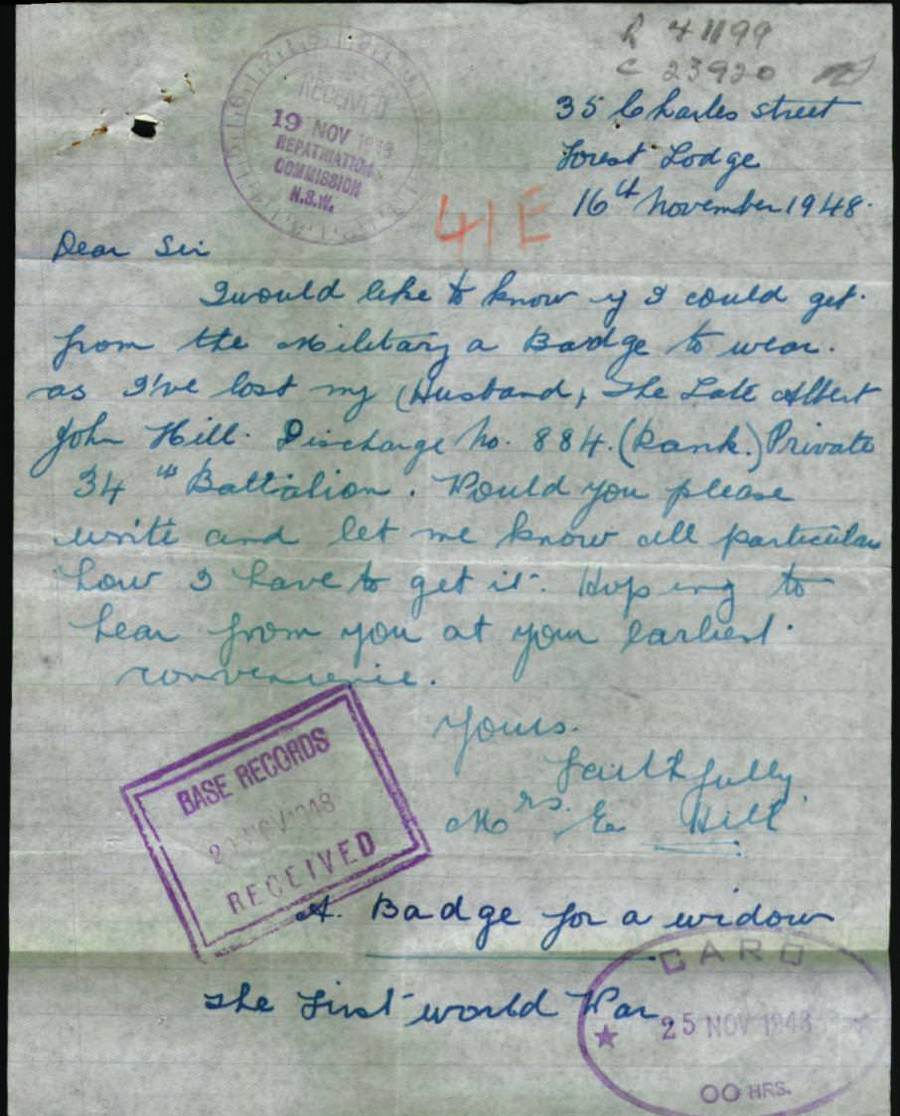 R 41199
C 23920
RECEIVED
19 NOV 1948
REPATRIATION
COMMISSION
N.S.W.
35 Charles street
Forest Lodge
16th November 1948.
41E
Dear Sir
I would like to know if I could get.
from the Military a Badge to wear.
as I've lost my (Husband, The Late Albert
John Hill. Discharge No. 884. (Rank.) Private
34 th Battalion. Would you please
write and let me know all particulars
how I have to get it. Hoping to
hear from you at your earliest.
convenience.
Yours.
Faithfully
Mrs. E Hill
BASE RECORDS
NOV 1948
RECEIVED
A. Badge for a widow
The First world War
CARO
25 NOV 1948
00 HRS.